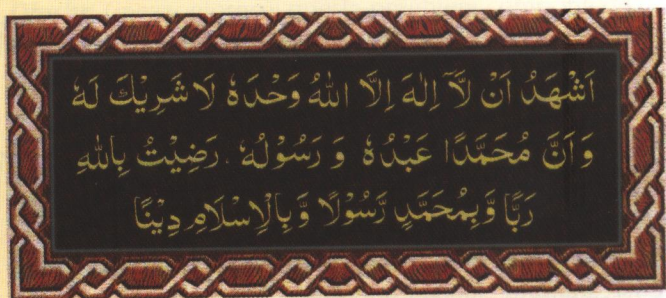 اَشْهَدُ اَنْ لَّآ اِلٰهَ اِلَّا اللهُ وَحْدَهٗ لَا شَرِيْكَ لَهٗ
وَ اَنَّ مُحَمَّدًا عَبْدُهٗ وَ رَسُوْلُهٗ . رَضِيْتُ بِاللهِ
رَبًّا وَّ بِمُحَمَّدٍ رَّسُوْلًا وَّ بِالْاِسْلَامِ دِيْنًا